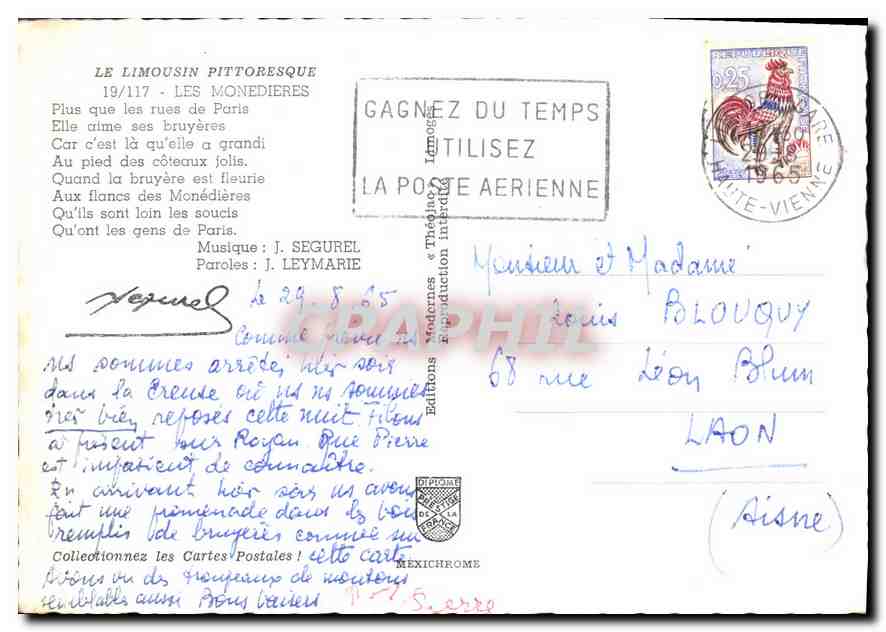 LE LIMOUSIN PITTORESQUE
19/117 - LES MONEDIERES
Plus que les rues de Paris
Elle aime ses bruyères
Car c'est là qu'elle a grandi
Au pied des côteaux jolis.
Quand la bruyère est fleurie
Aux flancs des Monédières
Qu'ils sont loin les soucis
Qu'ont les gens de Paris.
Musique : J. SEGUREL
Paroles : J. LEYMARIE
Segurel
Le 29.8.65
Comme prévu ns
ns sommes arrêtés hier soir
dans la Creuse où ns ns sommes
très bien reposés cette nuit. Filons
à présent sur Royan que Pierre
est impatient de connaître.
En arrivant hier soir ns avons
fait une promenade dans les bois
remplis de bruyères comme sur
Collectionnez les Cartes Postales !
cette carte
Avons vu des troupeaux de moutons
semblables aussi Bons baisers
Editions Modernes « Théojac » Limoges
Reproduction interdite
DIPLOME
PRESTIGE
DE LA
FRANCE
MEXICHROME
GAGNEZ DU TEMPS
UTILISEZ
LA POSTE AERIENNE
0,25
GARE
1965
HAUTE-VIENNE
Monsieur et Madame
Louis BLOUQUY
68 rue Léon Blum
LAON
(Aisne)
CPAPHIL